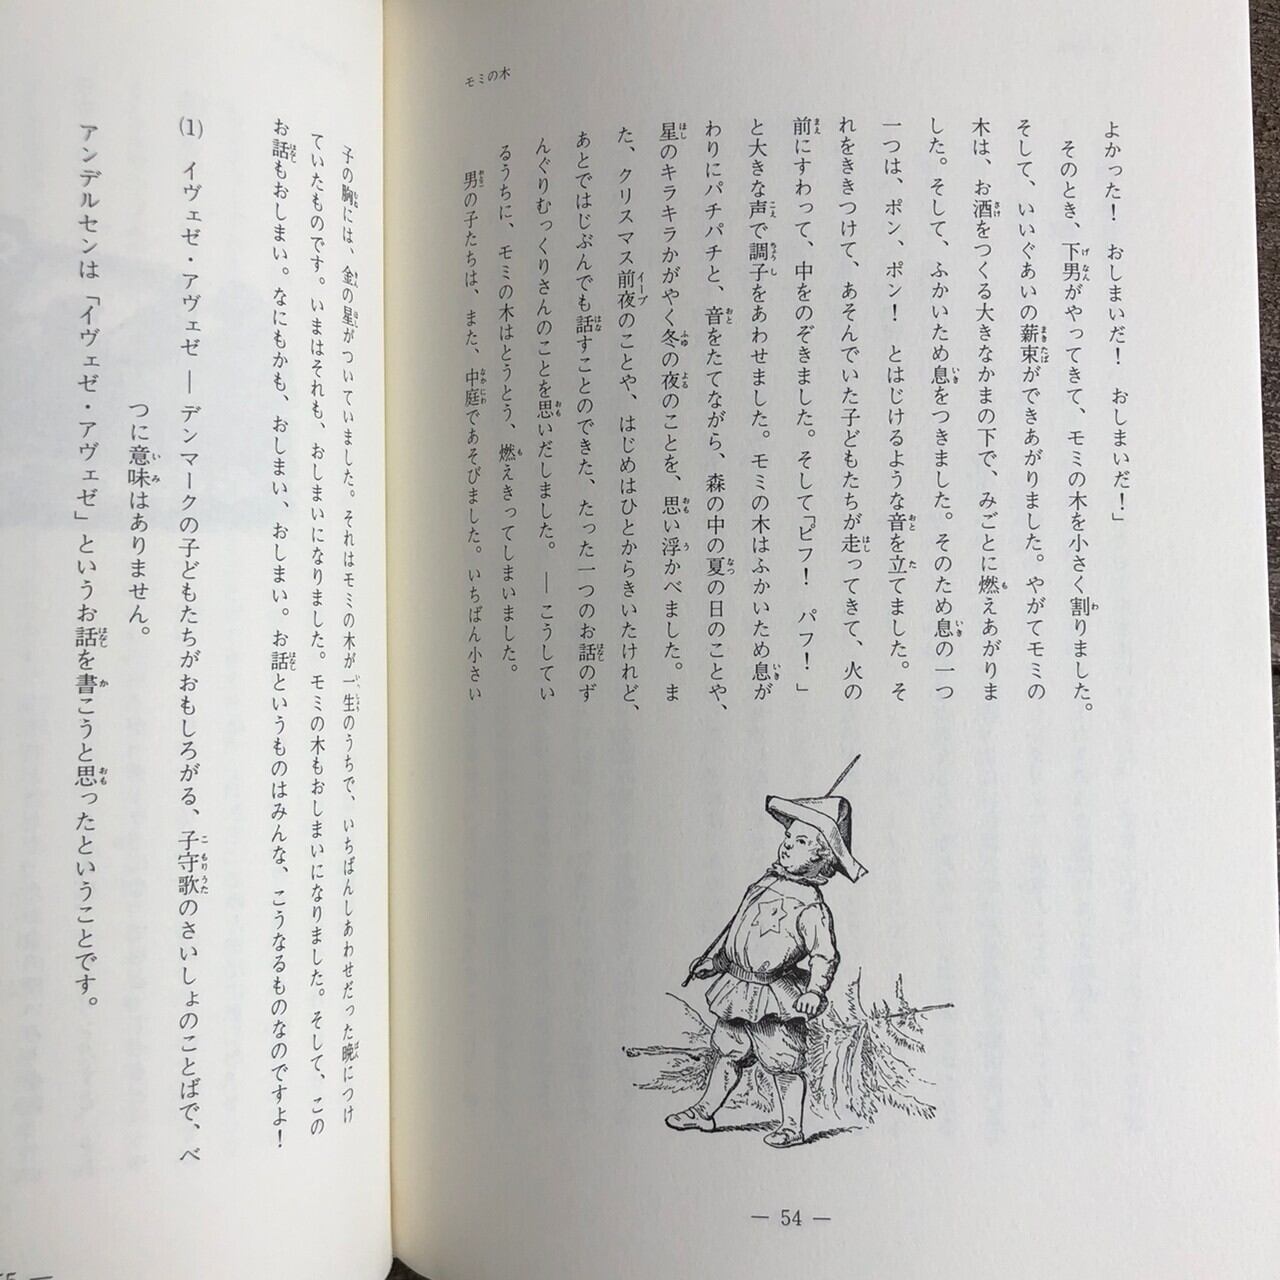 モミの木
よかった！　おしまいだ！　おしまいだ！」
そのとき、下男がやってきて、モミの木を小さく割りました。
そして、いいぐあいの薪束ができあがりました。やがてモミの
木は、お酒をつくる大きなかまの下で、みごとに燃えあがりま
した。そして、ふかいため息をつきました。そのため息の一つ
一つは、ポン、ポン！　とはじけるような音を立てました。そ
れをききつけて、あそんでいた子どもたちが走ってきて、火の
前にすわって、中をのぞきました。そして「ピフ！　パフ！」
と大きな声で調子をあわせました。モミの木はふかいため息が
わりにパチパチと、音をたてながら、森の中の夏の日のことや、
星のキラキラかがやく冬の夜のことを、思い浮かべました。ま
た、クリスマス前夜のことや、はじめはひとからきいたけれど、
あとではじぶんでも話すことのできた、たった一つのお話のず
んぐりむっくりさんのことを思いだしました。――こうしてい
るうちに、モミの木はとうとう、燃えきってしまいました。
男の子たちは、また、中庭であそびました。いちばん小さい
― 54 ―
子の胸には、金の星がついていました。それはモミの木が一生のうちで、いちばんしあわせだった晩につけ
ていたものです。いまはそれも、おしまいになりました。モミの木もおしまいになりました。そして、この
お話もおしまい。なにもかも、おしまい、おしまい。お話というものはみんな、こうなるものなのですよ！
(1)　イヴェゼ・アヴェゼ ― デンマークの子どもたちがおもしろがる、子守歌のさいしょのことばで、べ
つに意味はありません。
アンデルセンは「イヴェゼ・アヴェゼ」というお話を書こうと思ったということです。